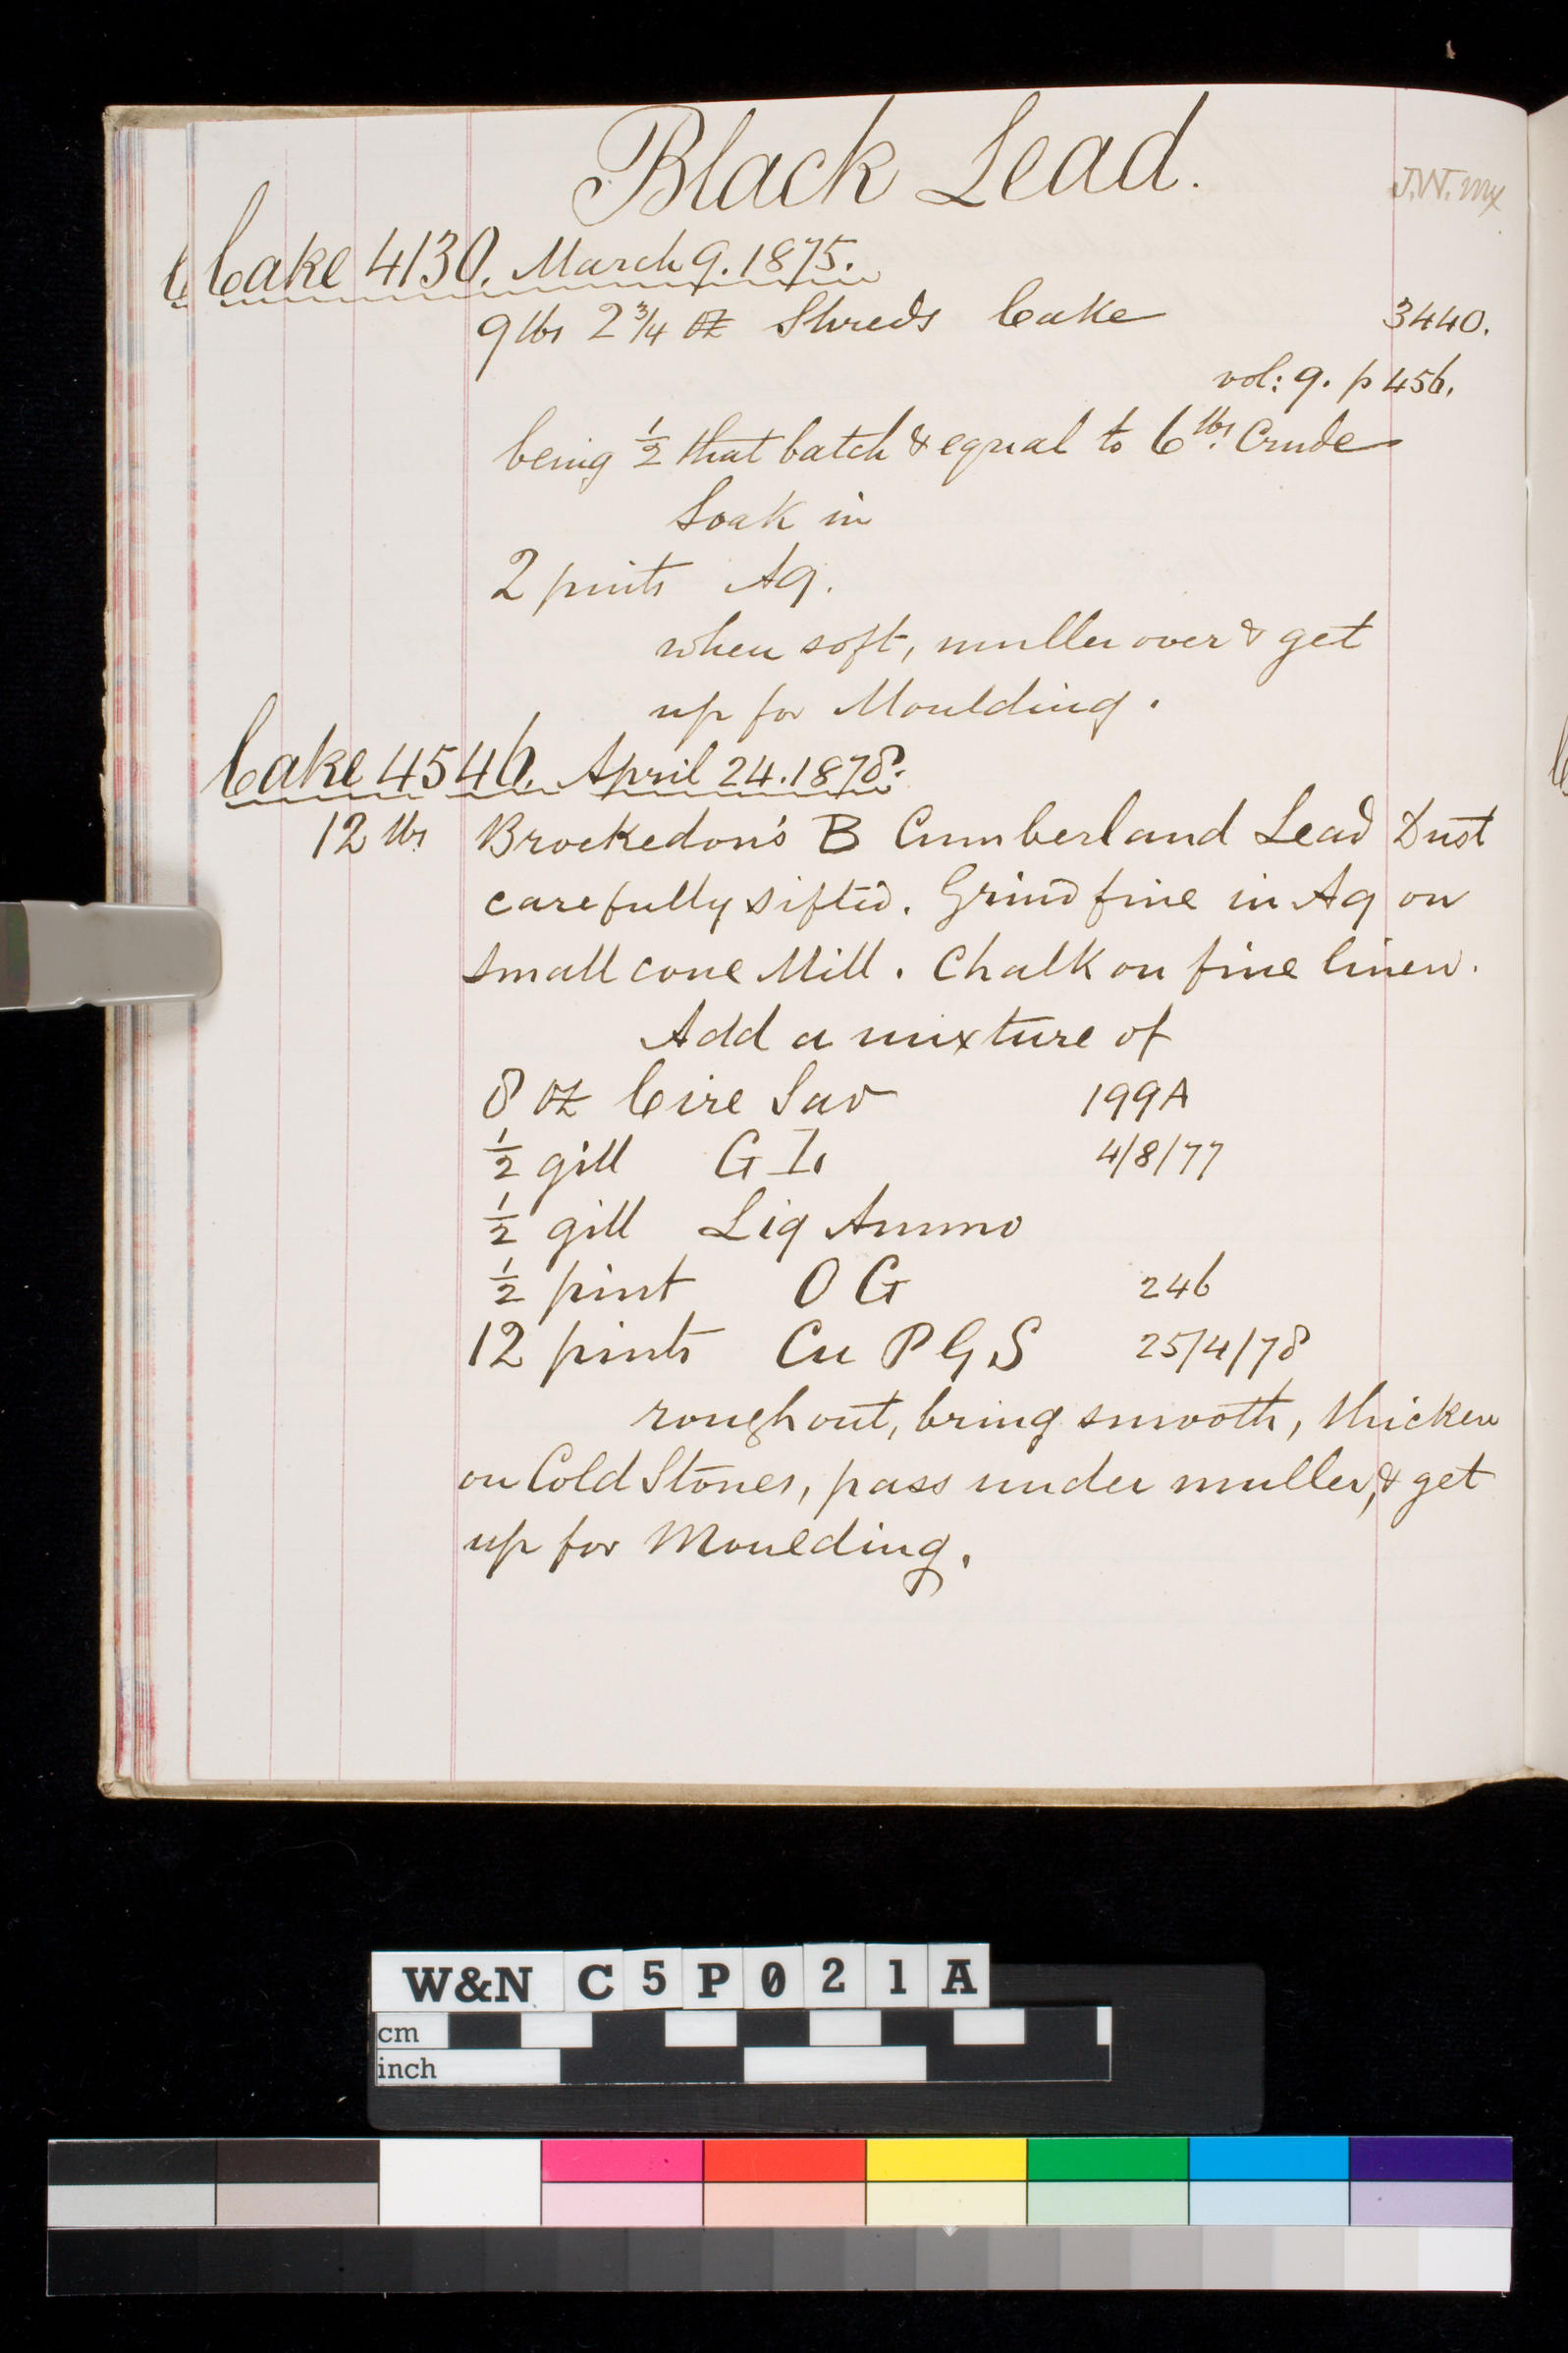 Black Lead.
J.W. mx
Cake 4130. March 9. 1875.
9 lbs 2 3/4 oz Shreds Cake 3440.
vol: 9. p 456.
being 1/2 that batch & equal to 6 lbs. Crude
Soak in
2 pints Aq.
when soft, muller over & get
up for Moulding.
Cake 4546. April 24. 1878.
12 lbs Brockedon's B Cumberland Lead Dust
carefully sifted. Grind fine in Aq on
small cone Mill. Chalk on fine linen.
Add a mixture of
8 oz Cire Sav 199A
1/2 gill G I. 4/8/77
1/2 gill Liq Ammo
1/2 pint O G 246
12 pints Cu P G S 25/4/78
rough out, bring smooth, thicken
on Cold Stones, pass under muller, & get
up for Moulding.
W&N C5P021A
cm
inch